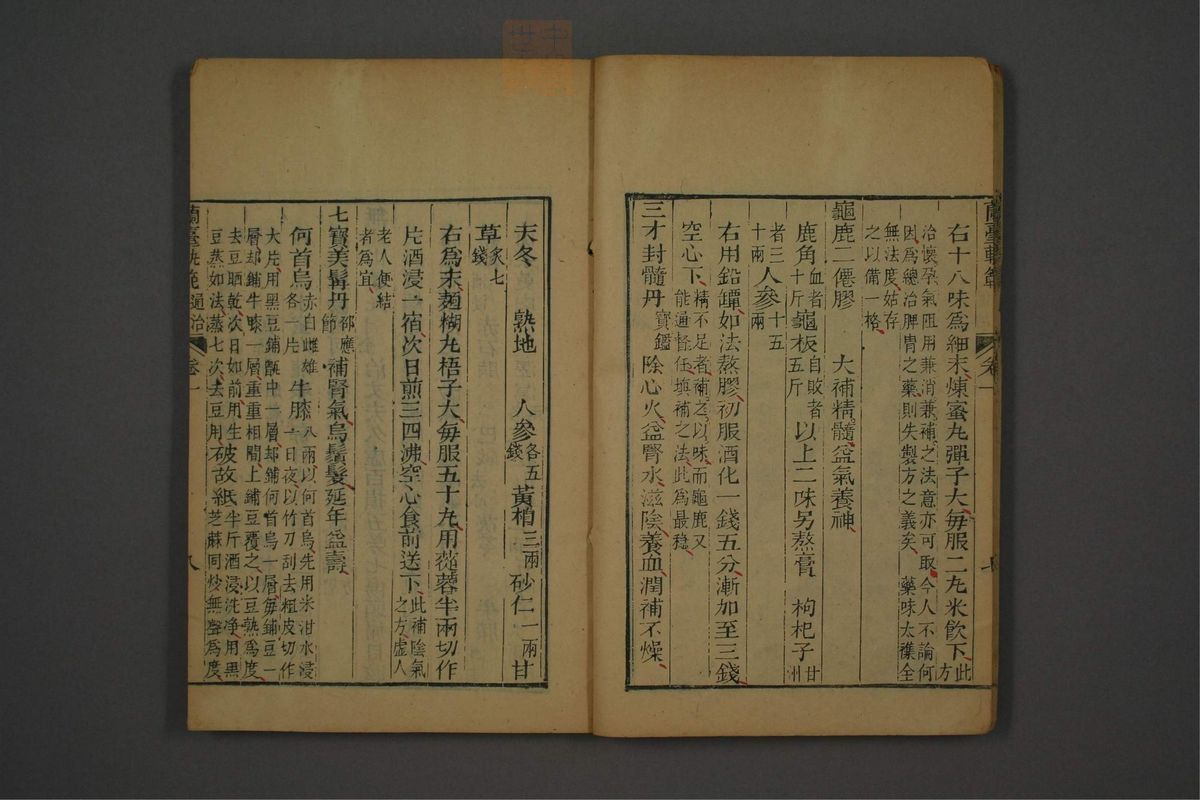 蘭臺軌範 卷一
右十八味爲細末煉蜜丸彈子大每服二丸米飲下此方
治懷孕氣阻用兼消兼補之法意亦可取今人不論何
因爲總治脾胃之藥則失製方之義矣 藥味太襍全
無法度姑存
之以備一格
龜鹿二僊膠 大補精髓益氣養神
鹿角血者十斤 龜板自敗者五斤 以上二味另熬膏 枸杞子甘州
者三十兩 人參十五兩
右用鉛罈如法熬膠初服酒化一錢五分漸加至三錢
空心下精不足者補之以味而龜鹿又能通督任填補之法此爲最穩
三才封髓丹寶鑑 降心火益腎水滋陰養血潤補不燥
天冬 熟地 人參各五錢 黃栢三兩 砂仁一兩 甘
草炙七錢
右爲末麵糊丸梧子大每服五十丸用蓯蓉半兩切作
片酒浸一宿次日煎三四沸空心食前送下此補陰氣之方虛人
老人便結者爲宜
七寶美髯丹邵應節 補腎氣烏鬚髮延年益壽
何首烏赤白雌雄各一片 牛膝八兩以何首烏先用米泔水浸一日夜以竹刀刮去粗皮切作
大片用黑豆鋪甑中一層却鋪何首烏一層每鋪豆一
層却鋪牛膝一層重重相間上鋪豆覆之以豆熟爲度
去豆晒乾次日如前用生
豆蒸如法蒸七次去豆用 破故紙半斤酒浸洗净用黑芝蔴同炒無聲爲度
蘭臺軌範 通治 卷一 八